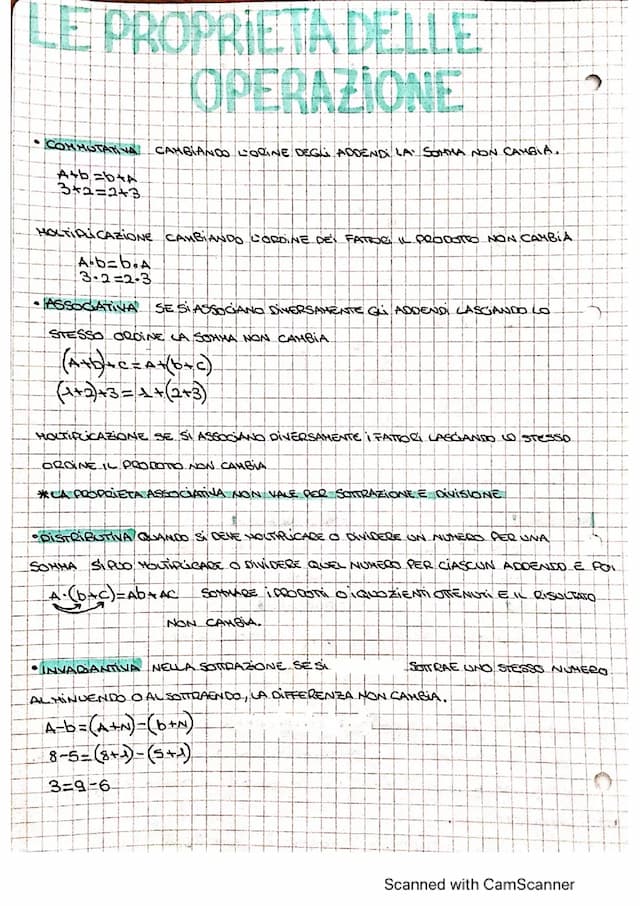 LE PROPRIETA DELLE
OPERAZIONE
• COMMUTATIVA CAMBIANDO L'ORINE DEGLI ADDENDI LA' SOMMA NON CAMBIA.
A+b=b+A
3+2=2+3
MOLTIPLICAZIONE CAMBIANDO L'ORDINE DEI FATTORI IL PRODOTTO NON CAMBIA
A•b=b•A
3•2=2•3
• ASSOCIATIVA SE SI ASSOCIANO DIVERSAMENTE GLI ADDENDI LASCIANDO LO
STESSO ORDINE LA SOMMA NON CAMBIA
(A+b)+c=A+(b+c)
(1+2)+3=1+(2+3)
MOLTIPLICAZIONE SE SI ASSOCIANO DIVERSAMENTE I FATTORI LASCIANDO LO STESSO
ORDINE IL PRODOTTO NON CAMBIA
*LA PROPRIETA ASSOCIATIVA NON VALE PER SOTTRAZIONE E DIVISIONE
•DISTRIBUTIVA QUANDO SI DEVE MOLTIPLICARE O DIVIDERE UN NUMERO PER UNA
SOMMA SI PUO MOLTIPLICARE O DIVIDERE QUEL NUMERO PER CIASCUN ADDENDO E POI
A•(b+c)=Ab+AC SOMMARE I PRODOTTI O I QUOZIENTI OTTENUTI E IL RISULTATO
NON CAMBIA.
• INVARIANTIVA NELLA SOTTRAZIONE SE SI SOTTRAE UNO STESSO NUMERO
AL MINUENDO O AL SOTTRAENDO, LA DIFFERENZA NON CAMBIA.
A-b=(A+N)-(b+N)
8-5=(8+1)-(5+1)
3=9-6
Scanned with CamScanner